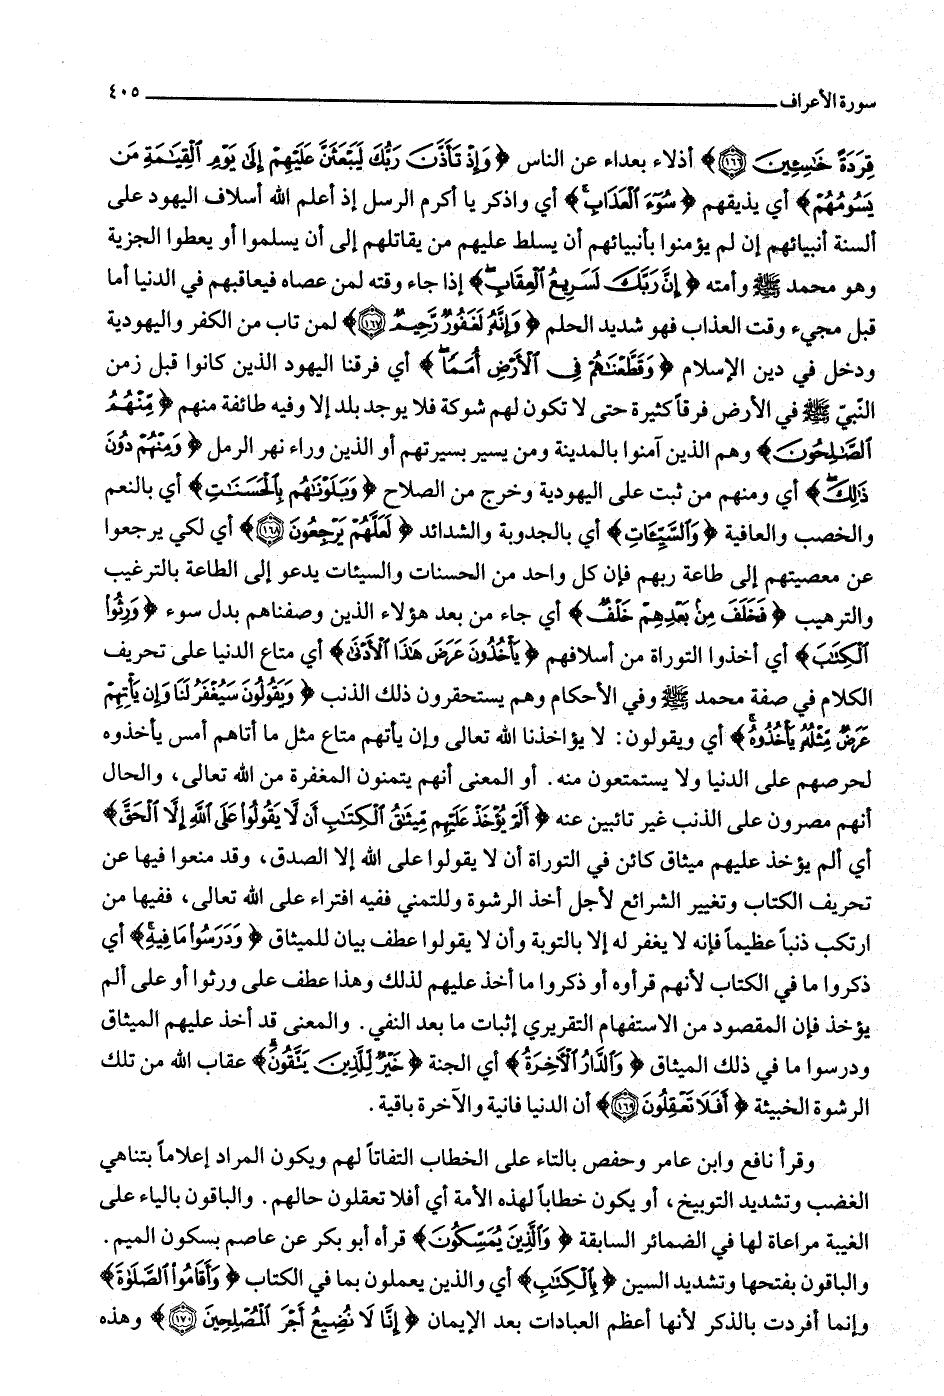 سورة الأعراف ٤٠٥
قِرَدَةً خَٰسِـِٔينَ ١٦٦﴾ أذلاء بعداء عن الناس ﴿وَإِذْ تَأَذَّنَ رَبُّكَ لَيَبْعَثَنَّ عَلَيْهِمْ إِلَىٰ يَوْمِ ٱلْقِيَٰمَةِ مَن
يَسُومُهُمْ﴾ أي يذيقهم ﴿سُوٓءَ ٱلْعَذَابِ﴾ أي واذكر يا أكرم الرسل إذ أعلم الله أسلاف اليهود على
ألسنة أنبيائهم إن لم يؤمنوا بأنبيائهم أن يسلط عليهم من يقاتلهم إلى أن يسلموا أو يعطوا الجزية
وهو محمد ﷺ وأمته ﴿إِنَّ رَبَّكَ لَسَرِيعُ ٱلْعِقَابِ﴾ إذا جاء وقته لمن عصاه فيعاقبهم في الدنيا أما
قبل مجيء وقت العذاب فهو شديد الحلم ﴿وَإِنَّهُۥ لَغَفُورٌ رَّحِيمٌ ١٦٧﴾ لمن تاب من الكفر واليهودية
ودخل في دين الإسلام ﴿وَقَطَّعْنَٰهُمْ فِى ٱلْأَرْضِ أُمَمًا﴾ أي فرقنا اليهود الذين كانوا قبل زمن
النّبيّ ﷺ في الأرض فرقاً كثيرة حتى لا تكون لهم شوكة فلا يوجد بلد إلا وفيه طائفة منهم ﴿مِّنْهُمُ
ٱلصَّٰلِحُونَ﴾ وهم الذين آمنوا بالمدينة ومن يسير بسيرتهم أو الذين وراء نهر الرمل ﴿وَمِنْهُمْ دُونَ
ذَٰلِكَ﴾ أي ومنهم من ثبت على اليهودية وخرج من الصلاح ﴿وَبَلَوْنَٰهُم بِٱلْحَسَنَٰتِ﴾ أي بالنعم
والخصب والعافية ﴿وَٱلسَّيِّـَٔاتِ﴾ أي بالجدوبة والشدائد ﴿لَعَلَّهُمْ يَرْجِعُونَ ١٦٨﴾ أي لكي يرجعوا
عن معصيتهم إلى طاعة ربهم فإن كل واحد من الحسنات والسيئات يدعو إلى الطاعة بالترغيب
والترهيب ﴿فَخَلَفَ مِنۢ بَعْدِهِمْ خَلْفٌ﴾ أي جاء من بعد هؤلاء الذين وصفناهم بدل سوء ﴿وَرِثُوا۟
ٱلْكِتَٰبَ﴾ أي أخذوا التوراة من أسلافهم ﴿يَأْخُذُونَ عَرَضَ هَٰذَا ٱلْأَدْنَىٰ﴾ أي متاع الدنيا على تحريف
الكلام في صفة محمد ﷺ وفي الأحكام وهم يستحقرون ذلك الذنب ﴿وَيَقُولُونَ سَيُغْفَرُ لَنَا وَإِن يَأْتِهِمْ
عَرَضٌ مِّثْلُهُۥ يَأْخُذُوهُ﴾ أي ويقولون: لا يؤاخذنا الله تعالى وإن يأتهم متاع مثل ما أتاهم أمس يأخذوه
لحرصهم على الدنيا ولا يستمتعون منه. أو المعنى أنهم يتمنون المغفرة من الله تعالى، والحال
أنهم مصرون على الذنب غير تائبين عنه ﴿أَلَمْ يُؤْخَذْ عَلَيْهِم مِّيثَٰقُ ٱلْكِتَٰبِ أَن لَّا يَقُولُوا۟ عَلَى ٱللَّهِ إِلَّا ٱلْحَقَّ﴾
أي ألم يؤخذ عليهم ميثاق كائن في التوراة أن لا يقولوا على الله إلا الصدق، وقد منعوا فيها عن
تحريف الكتاب وتغيير الشرائع لأجل أخذ الرشوة وللتمني ففيه افتراء على الله تعالى، ففيها من
ارتكب ذنباً عظيماً فإنه لا يغفر له إلا بالتوبة وأن لا يقولوا عطف بيان للميثاق ﴿وَدَرَسُوا۟ مَا فِيهِ﴾ أي
ذكروا ما في الكتاب لأنهم قرأوه أو ذكروا ما أخذ عليهم لذلك وهذا عطف على ورثوا أو على ألم
يؤخذ فإن المقصود من الاستفهام التقريري إثبات ما بعد النفي. والمعنى قد أخذ عليهم الميثاق
ودرسوا ما في ذلك الميثاق ﴿وَٱلدَّارُ ٱلْـَٔاخِرَةُ﴾ أي الجنة ﴿خَيْرٌ لِّلَّذِينَ يَتَّقُونَ﴾ عقاب الله من تلك
الرشوة الخبيثة ﴿أَفَلَا تَعْقِلُونَ ١٦٩﴾ أن الدنيا فانية والآخرة باقية.
وقرأ نافع وابن عامر وحفص بالتاء على الخطاب التفاتاً لهم ويكون المراد إعلاماً بتناهي
الغضب وتشديد التوبيخ، أو يكون خطاباً لهذه الأمة أي أفلا تعقلون حالهم. والباقون بالياء على
الغيبة مراعاة لها في الضمائر السابقة ﴿وَٱلَّذِينَ يُمَسِّكُونَ﴾ قرأه أبو بكر عن عاصم بسكون الميم.
والباقون بفتحها وتشديد السين ﴿بِٱلْكِتَٰبِ﴾ أي والذين يعملون بما في الكتاب ﴿وَأَقَامُوا۟ ٱلصَّلَوٰةَ﴾
وإنما أفردت بالذكر لأنها أعظم العبادات بعد الإيمان ﴿إِنَّا لَا نُضِيعُ أَجْرَ ٱلْمُصْلِحِينَ ١٧٠﴾ وهذه